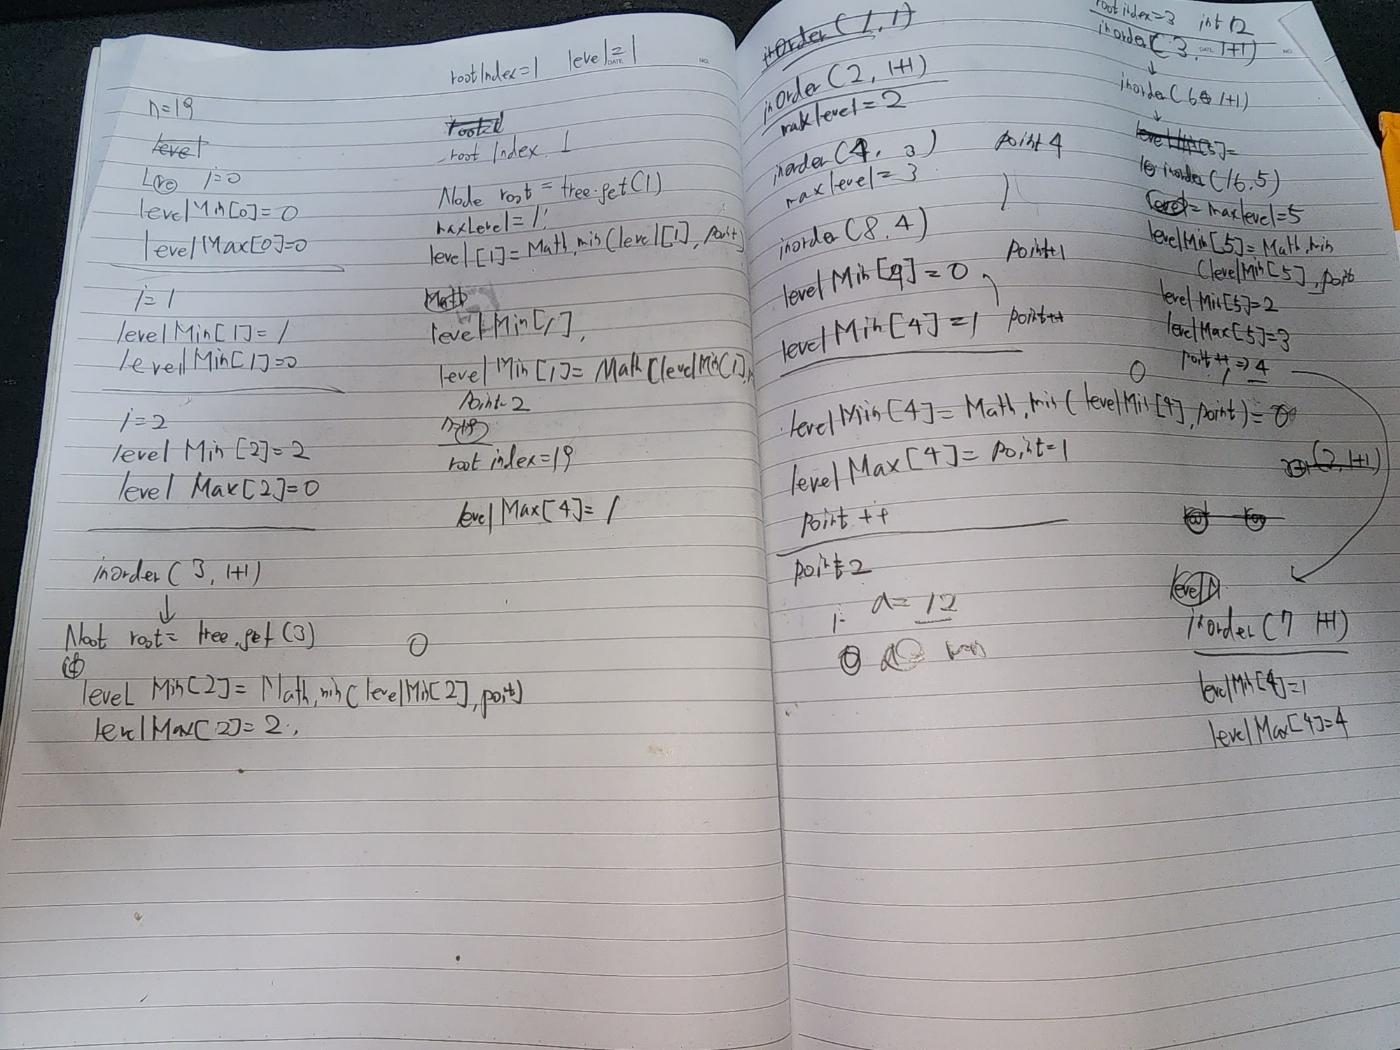 n=19
level
i=0
levelMin[0]=0
levelMax[0]=0
i=1
levelMin[1]=1
levelMin[1]=0
i=2
level Min[2]=2
level Max[2]=0
inorder(3, 1+1)
↓
Noot root= tree.get(3)
level Min[2]= Math,min(levelMin[2], point)
levelMax[2]=2.
rootIndex=1 level=1
root
root Index 1
Node root = tree.get(1)
maxLevel=1;
level[1]=Math,min(level[1], point)
Math
levelMin[1],
level Min[1]= Math(levelMin[1],
Point=2
root index=19
level Max[4]=1
0
inorder(1,1)
inorder(2, 1+1)
maxlevel=2
inorder(4, 3)
maxlevel=3
inorder(8,4)
level Min[4]=0
level Min[4]=1
point 4
point+1
point++
0
levelMin[4]= Math,min(levelMin[4],point)=0
levelMax[4]= point=1
Point ++
point=2
i= a=12
rootindex=3 int 12
inorder(3, 1+1)
↓
inorder(6 1+1)
↓
inorder(16,5)
= maxlevel=5
levelMin[5]=Math,min
(levelMin[5], point
levelMin[5]=2
levelMax[5]=3
point++ => 4
(7,1+1)
level
inorder(7 1+1)
levelMin[4]=1
levelMax[4]=4